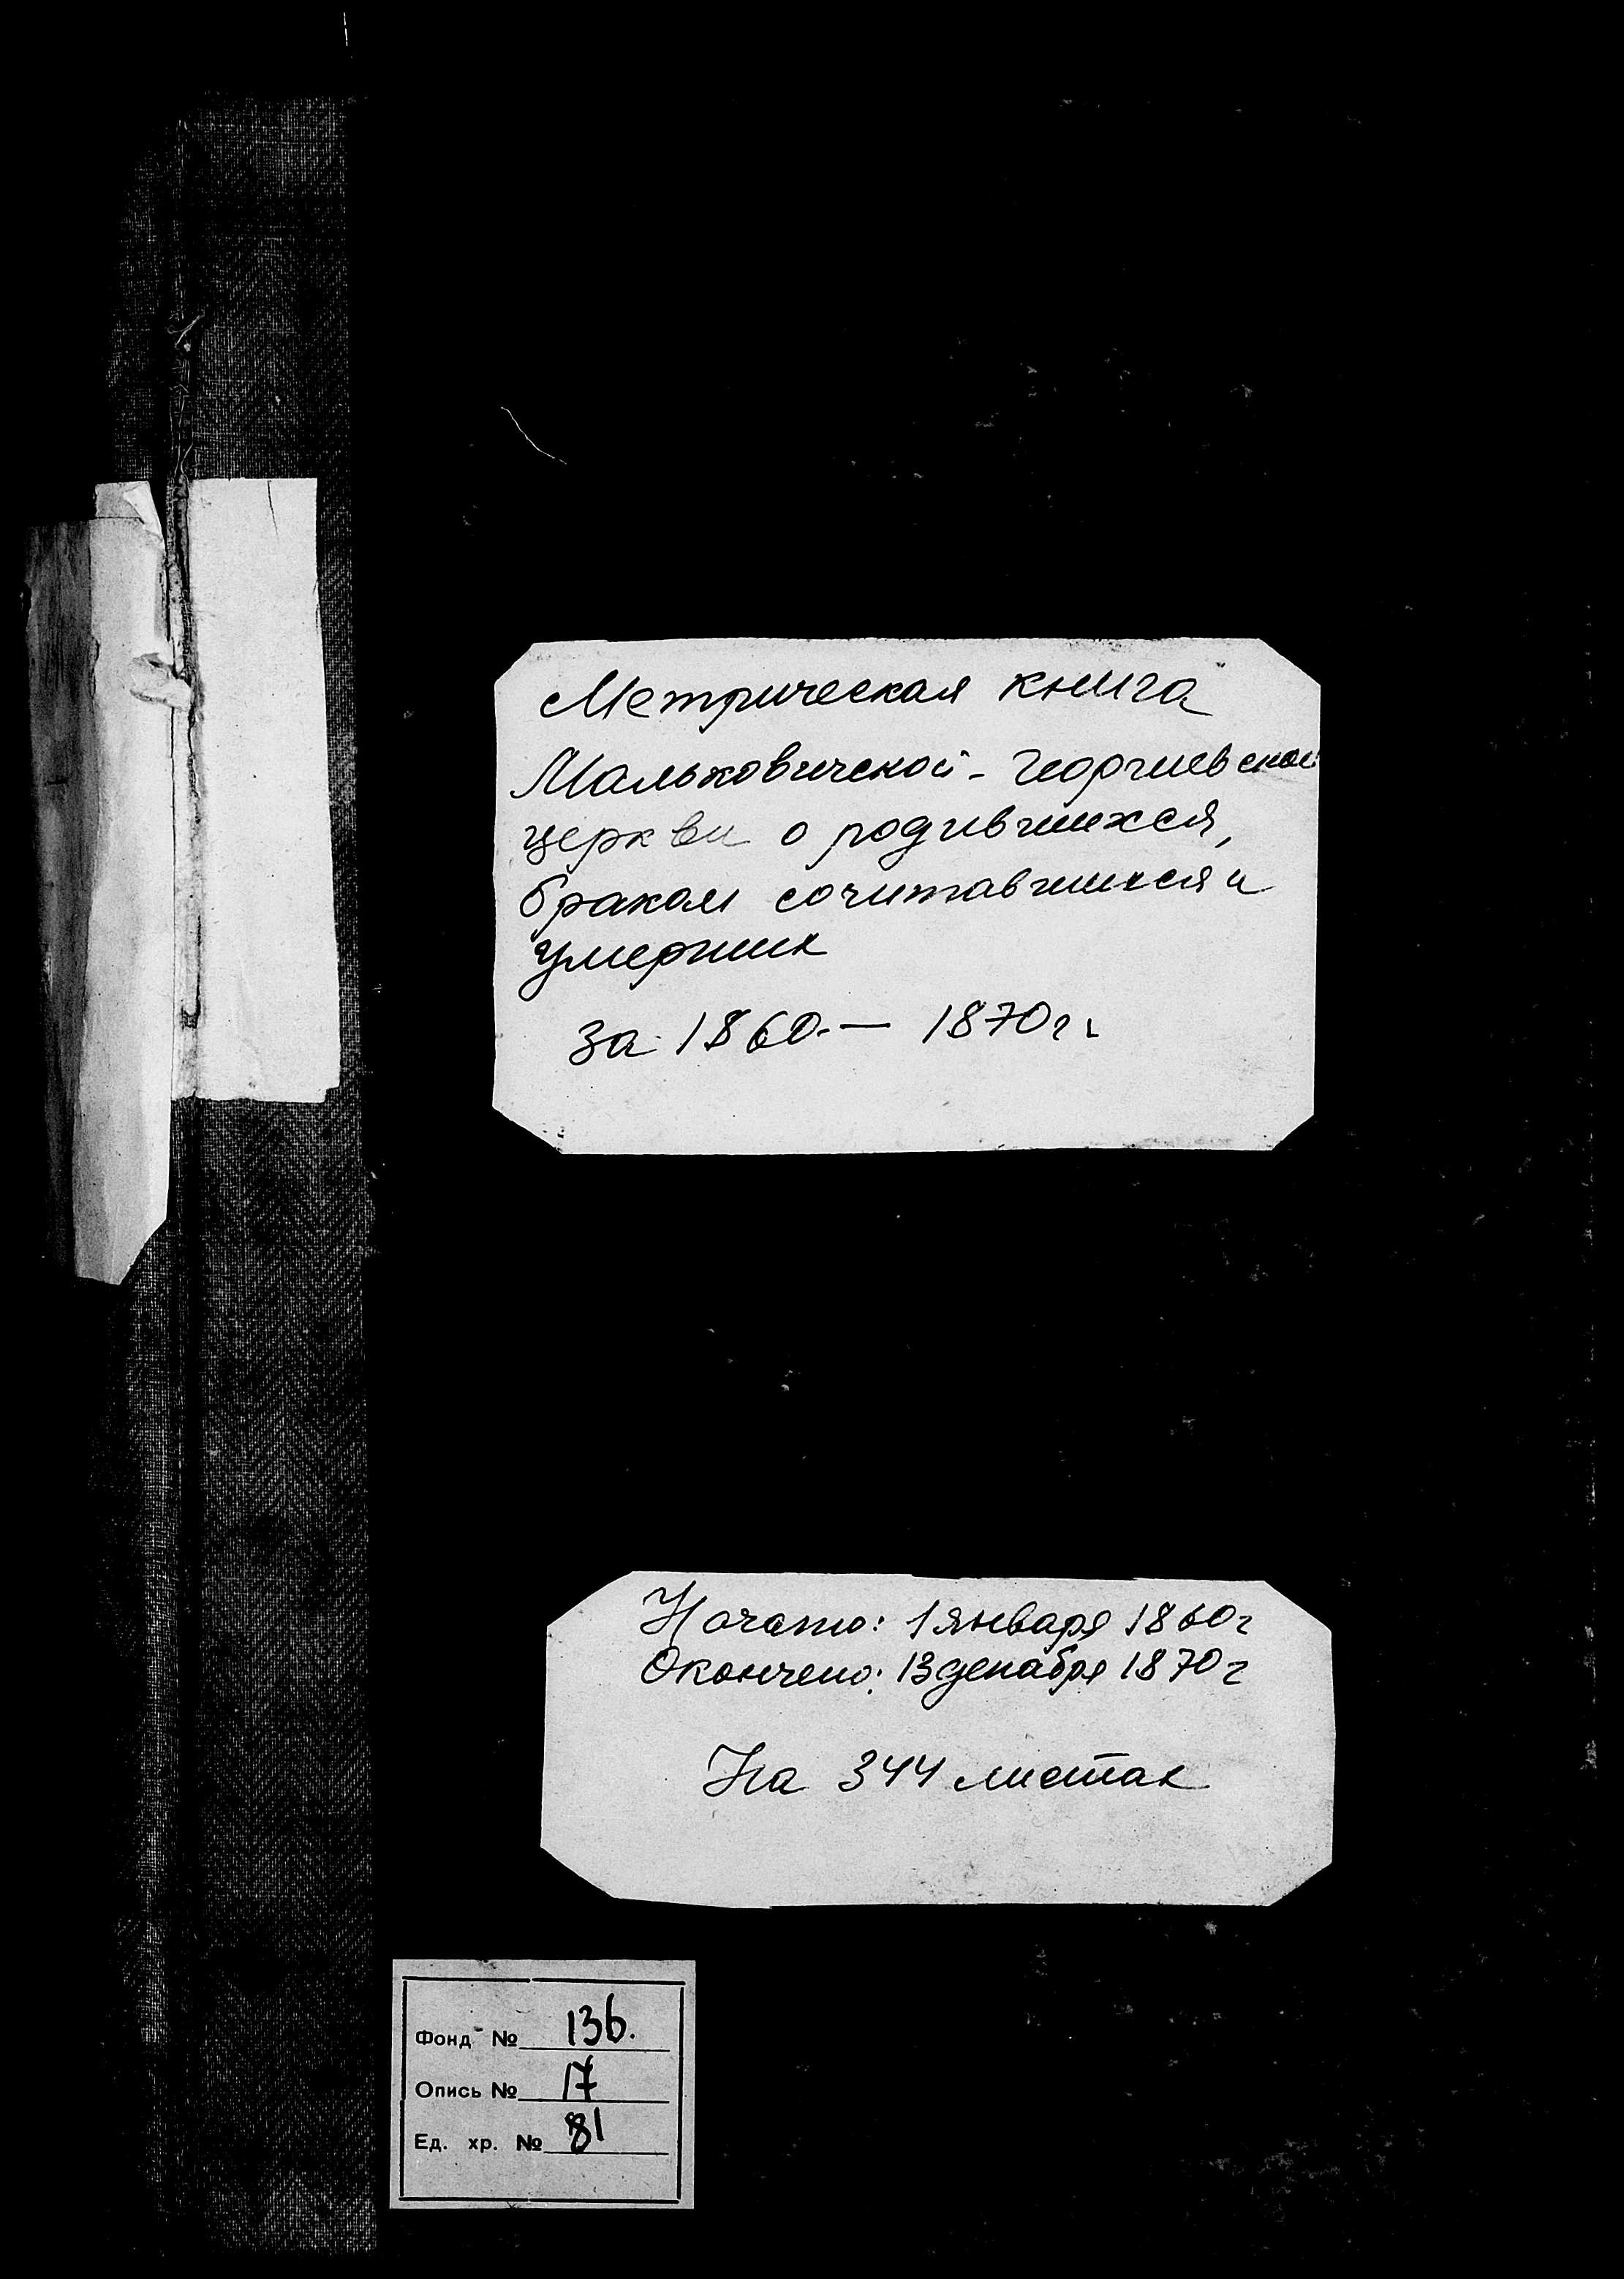 Метрическая книга
Мальковичской - Георгиевской
церкви о родившихся,
браком сочитавшихся и
умерших
за 1860. — 1870 г г.
Начато: 1 января 1860 г
Окончено: 13 декабря 1870 г
На 344 листах
Фонд № 136.
Опись № 17
Ед. хр. № 81